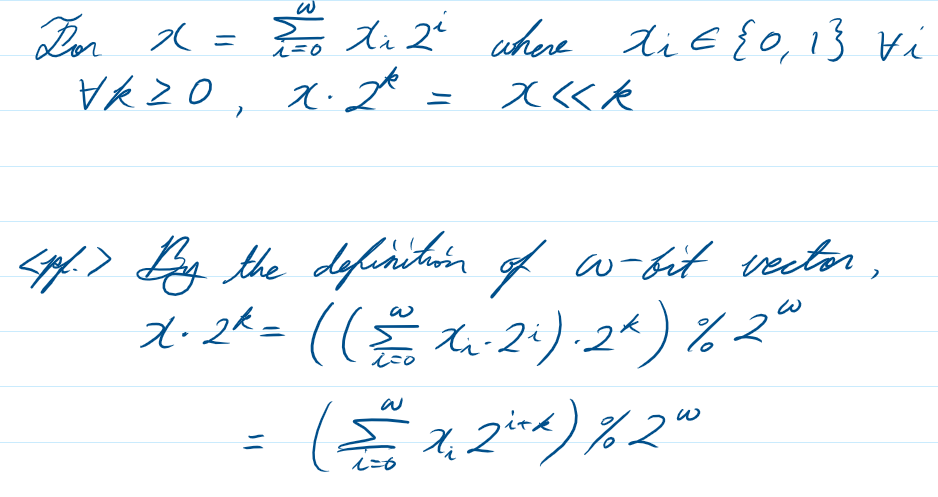 For x = ∑_{i=0}^{ω} x_i 2^i where x_i ∈ {0, 1} ∀i
∀k ≥ 0, x · 2^k = x << k
<pf.> By the definition of ω-bit vector,
x · 2^k = ((∑_{i=0}^{ω} x_i · 2^i) · 2^k) % 2^ω
= (∑_{i=0}^{ω} x_i 2^{i+k}) % 2^ω